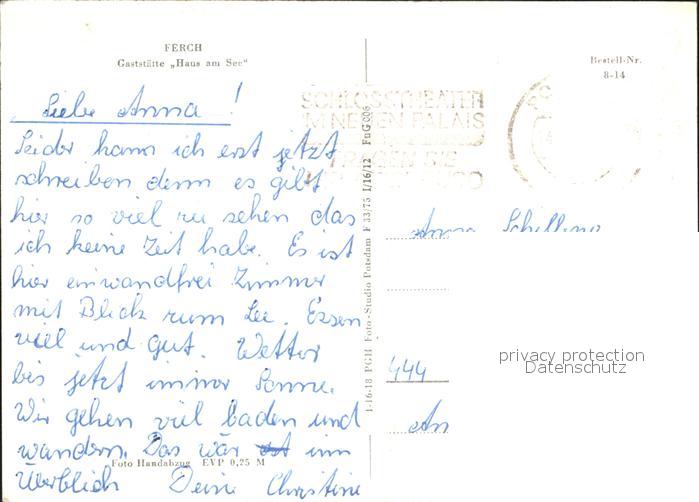 FERCH
Gaststätte „Haus am See"
Bestell-Nr.
8-14
SCHLOSSTHEATER
IM NEUEN PALAIS
FRAGEN SIE
Liebe Anna!
Leider kann ich erst jetzt
schreiben denn es gibt
hier so viel zu sehen das
ich keine Zeit habe. Es ist
hier einwandfrei Zimmer
mit Blick zum See. Essen
viel und gut. Wetter
bis jetzt immer Sonne.
Wir gehen viel baden und
wandern. Das wär im
Überblich Deine Christine
Foto Handabzug EVP 0,25 M
1-16-18 PGH Foto-Studio Potsdam F 33/75 I/16/12 FnG 206
Anna Schilling
444
An
privacy protection
Datenschutz